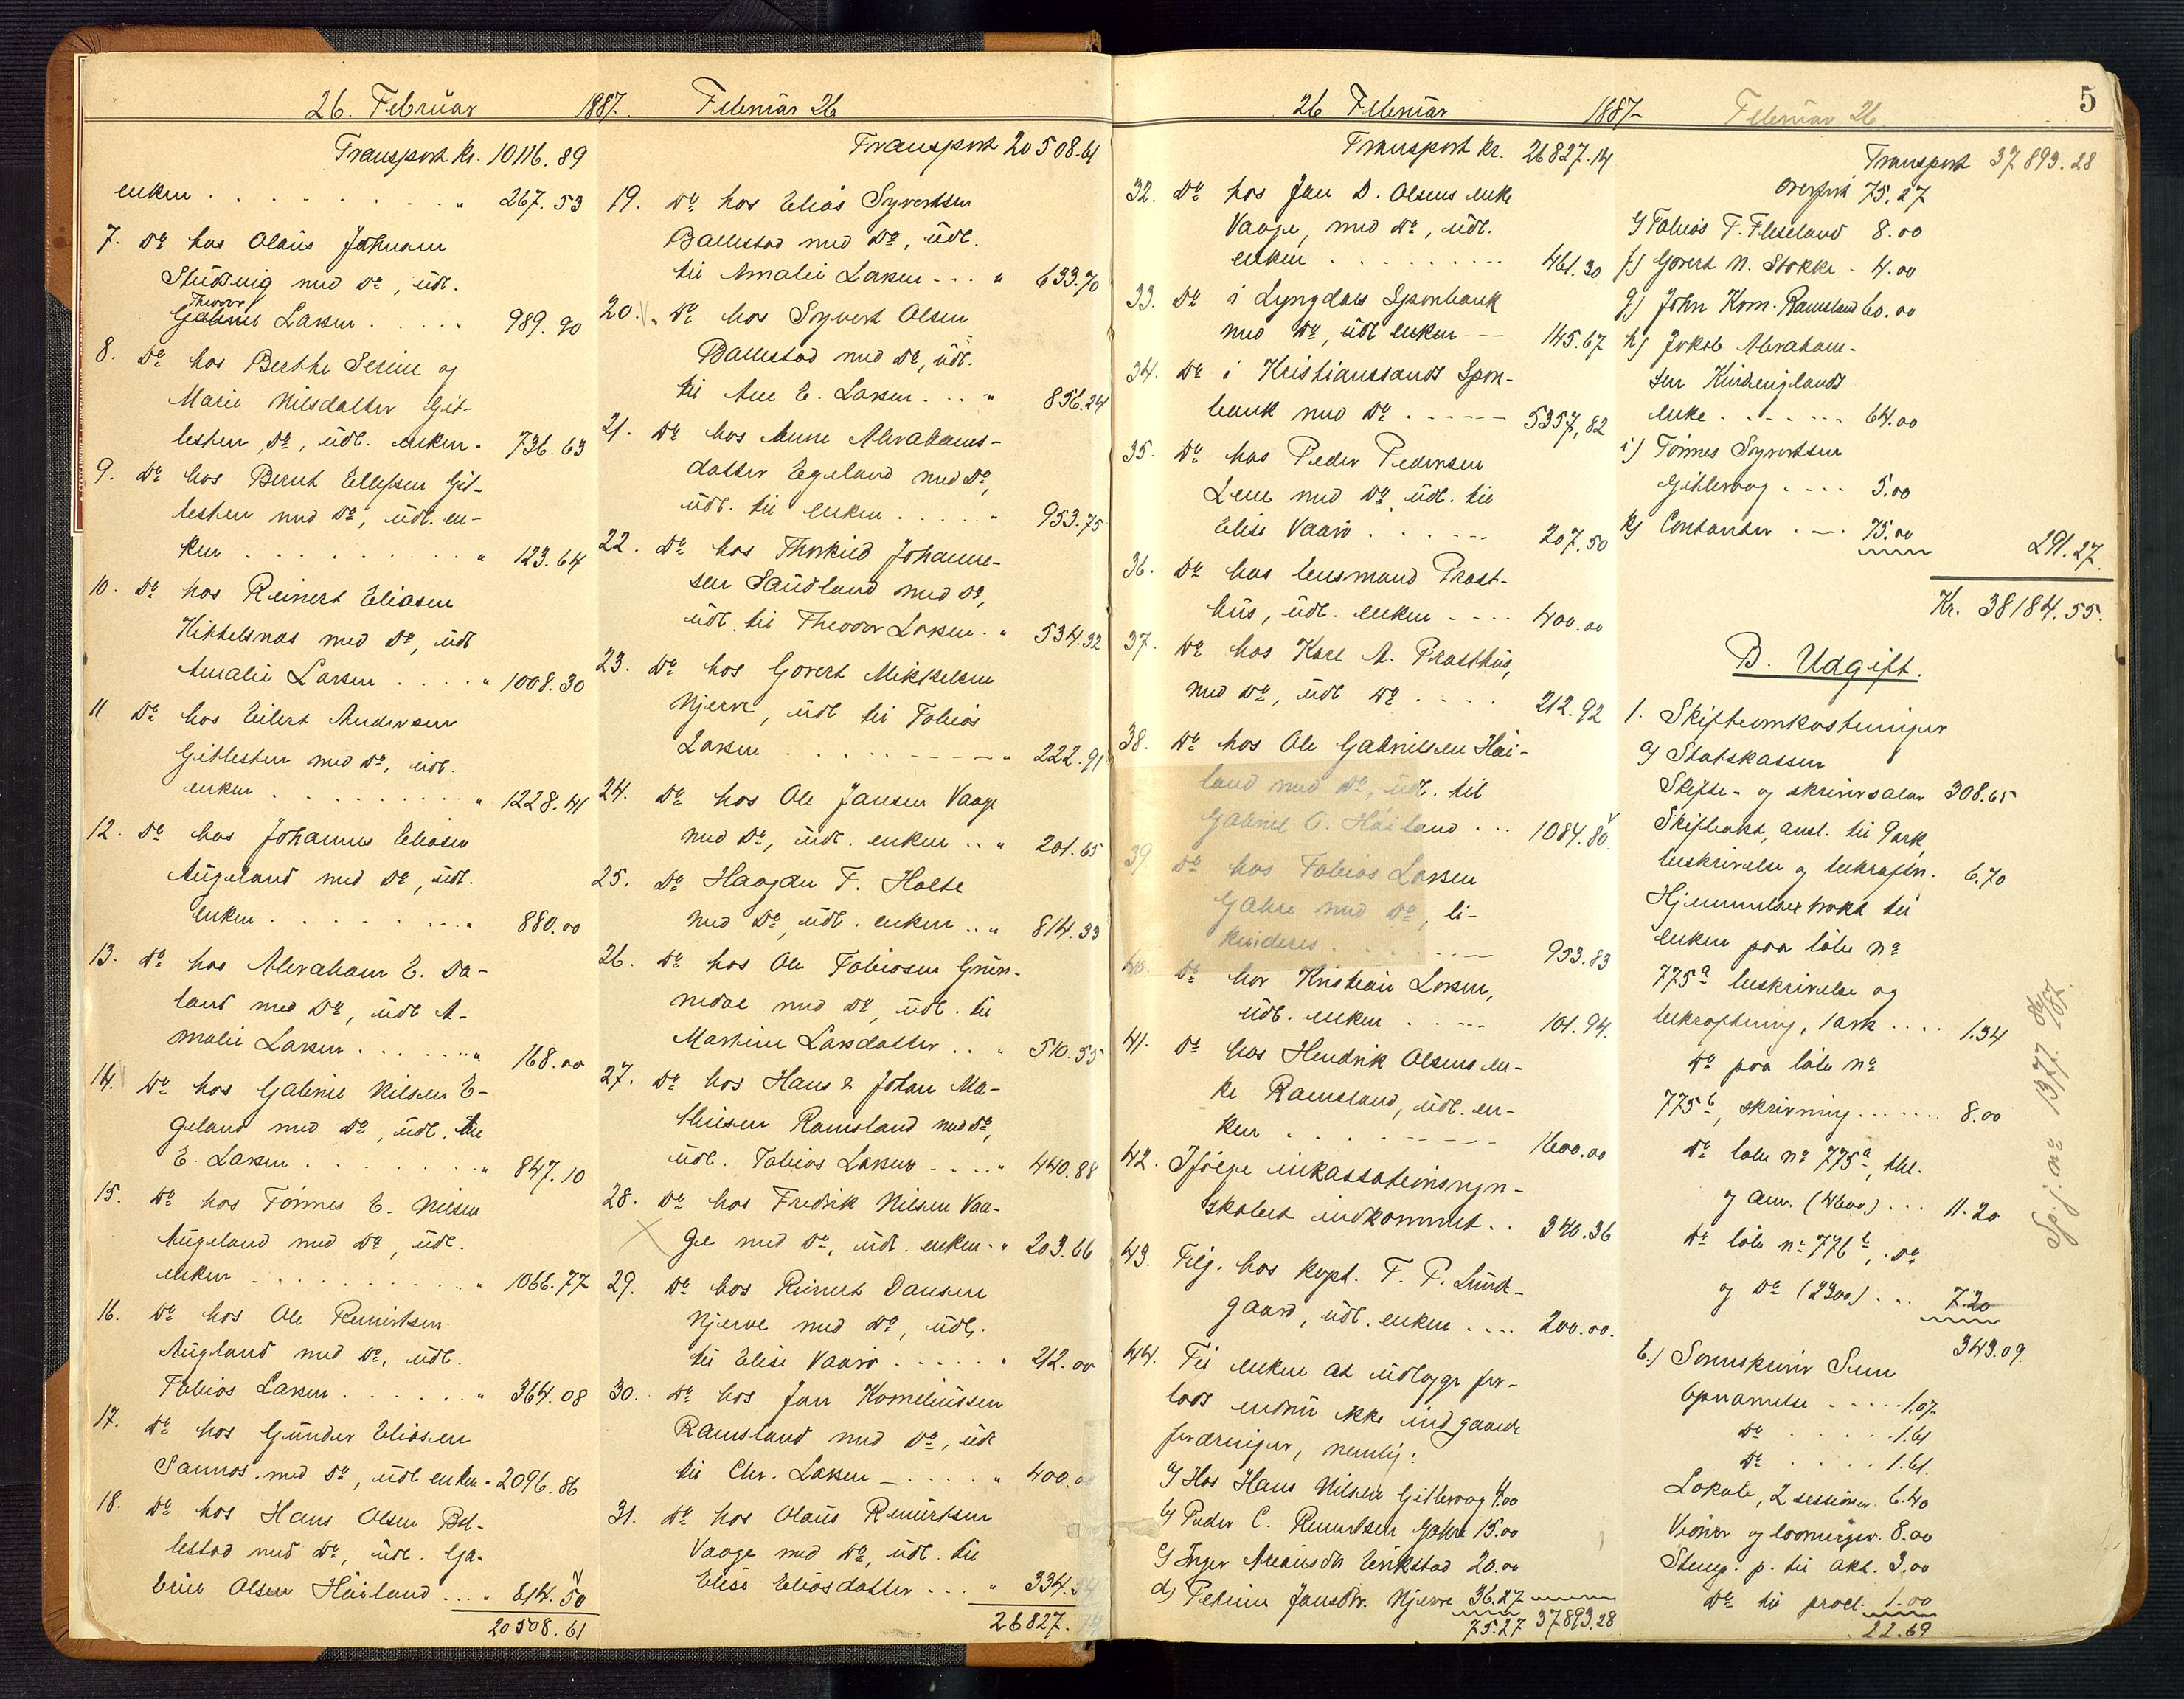 26. Februar 1887. Februar 26
Transport Kr. 10116.89
enken . . . . . . . . . . „ 267.53
7. Do hos Olaus Johnsen
Stusvig med Do, udl.
Theodor
Gabriel Larsen . . . . „ 989.90
8. Do hos Berthe Serine og
Marie Nilsdatter Git-
lesten, Do, udl. enken „ 736.63
9. Do hos Bernt Ellefsen Git-
lesten med Do, udl. en-
ken . . . . . . . . . . „ 123.64
10. Do hos Reinert Eliasen
Kittelsnas med Do, udl
Amalie Larsen . . . . „ 1008.30
11 Do hos Eilert Andersen
Gitlesten med Do, udl.
enken . . . . . . . . . „ 1228.41
12. Do hos Johannes Eliasen
Augeland med Do, udl.
enken . . . . . . . . . „ 880.00
13. Do hos Abraham E. Da-
land med Do, udl A-
malie Larsen . . . . . . „ 168.00
14. Do hos Gabriel Nilsen E-
geland med Do, udl. Ane
E. Larsen . . . . . . . . „ 847.10
15. Do hos Tönnes E. Nilsen
Augeland med Do, udl.
enken . . . . . . . . . . „ 1066.77
16. Do hos Ole Reinertsen
Augland med Do, udl.
Tobias Larsen . . . . . . „ 364.08
17. Do hos Gunder Eliasen
Sannas med Do, udl enken „ 2096.86
18. Do hos Hans Olsen Bal-
lestad med Do, udl. Ga-
briel Olsen Häiland . . . . „ 614.50
20508.61
Transport 20508.61
19. Do hos Elias Syvertsen
Ballestad med Do, udl.
til Amalie Larsen - - - „ 633.70
20. Do hos Syvert Olsen
Ballestad med Do, udl.
til Ane E. Larsen . . . „ 856.24
21. Do hos Anne Abrahams-
datter Egeland med Do,
udl. til enken . . . . . „ 953.75
22. Do hos Thorkild Johanne-
sen Saudland med Do,
udl. til Theodor Larsen . „ 534.32
23. Do hos Govert Mikkelsen
Njerve, udl til Tobias
Larsen . . . . . . - - - „ 222.91
24. Do hos Ole Jansen Vaage
med Do, udl. enken . . „ 201.65
25. Do Haagan T. Holte
med Do, udl. enken . . „ 814.33
26. Do hos Ole Tobiasen Grun-
nedal med Do, udl. til
Martine Larsdatter . . . „ 510.55
27. Do hos Hans & Johan Ma-
thiesen Ramsland med Do,
udl. Tobias Larsen - . . . „ 440.88
28. Do hos Fredrik Nilsen Vaa-
ge med Do, udl. enken . „ 203.66
29. Do hos Reinert Dansen
Njerve med Do, udl.
til Elise Vaarö . . . . . „ 212.00
30. Do hos Jan Korneliussen
Ramsland med Do, udl
til Chr. Larsen - . . . . „ 400.00
31. Do hos Olaus Reinertsen
Vaage med Do, udl. til
Elise Eliasdatter . . . „ 334.54
26827.14
26 Februar 1887- Februar 26. 5
Transport Kr. 26827.14
32. Do hos Jan D. Olsens enke
Vaage, med Do, udl.
enken . . . . . . . . . . 461.30
33. Do i Lyngdals Sparebank
med Do, udl enken - - - 145.67
34. Do i Kristianssands Spar-
bank med Do . - - - - - 5357,82
35. Do hos Peder Pedersen
Lene med Do udl. til
Elise Vaarö . . . . . . . 207.50
36. Do hos lensmand Prest-
hus, udl. enken - - - - 400.00
37. Do hos Karl A. Prestthus,
med Do, udl Do . . . . 212.92
38. Do hos Ole Gabrielsen Häi-
land med Do, udl. til
Gabriel O. Häiland . . . 1084.80
39 Do hos Tobias Larsen
Gahre med Do, li-
kvideres . . . . . . - - 953.83
40. Do hos Kristian Larsen,
udl. enken . . - - - 101.94.
41. Do hos Hendrik Olsens en-
ke Ramsland, udl. en-
ken . . . . . . . - - - - 1600.00
42. Ifölge inkassationsregn-
skabet indkommet . . 340.36
43. Tilg. hos kapt. T. P. Lund-
gaard, udl. enken . . . . 200.00.
44. Til enken at udlægge for-
lods endnu ikke indgaaede
fordringer, nemlig:
a) Hos Hans Nilsen Gitlevaag 4.00
b) Peder C. Reinertsen Gahre 15.00
c) Inger Areausdtr Erikstad 20.00
d) Petrine Jansdtr. Njerve 36.27
75.27 37893.28
Transport 37893.28
Overfört 75.27
e) Tobias T. Fleseland 8.00
f) Govert N. Stokke - 4.00
g) John Korn. Ramsland 60.00
h) Jakob Abraham-
sen Kvidenglands
enke . - - - . . . 64.00
i) Tönnes Syvertsen
Gitlevaag . . . . 5.00
k) Contanter . - - . 75.00 291.27.
Kr. 38184.55.
B. Udgift.
1. Skifteomkostninger
a) Statskassen
Skifte- og skriversalær 308.65
Skifteakt, ansl. til 9 ark,
beskrivelse og bekræftn. 6.70
Hjemmelsextrakt til
enken paa löbe no
775a beskrivelse og
bekræftning, 1 ark . . . . 1.34
Do paa löbe no
775b, skrivning . . . . . . . 8.00
Do löbe no 775a, thl.
og anv. (4600) . . . 11.20
Do löbe no 776b, Do
og Do (2300) . . . 7.20
343.09.
b.) Sorenskriver Sem
Opnævnelse . . . . . 1.07
Do . . . . . . 1.61
Do . . . . . 1.61.
Lokale, 2 sessioner 6.40
Vidner og looninger. 8.00
Stemp. p. til akt. 3,00
Do til procl. 1.00
22.69
Sp. j. no 1377 /87.